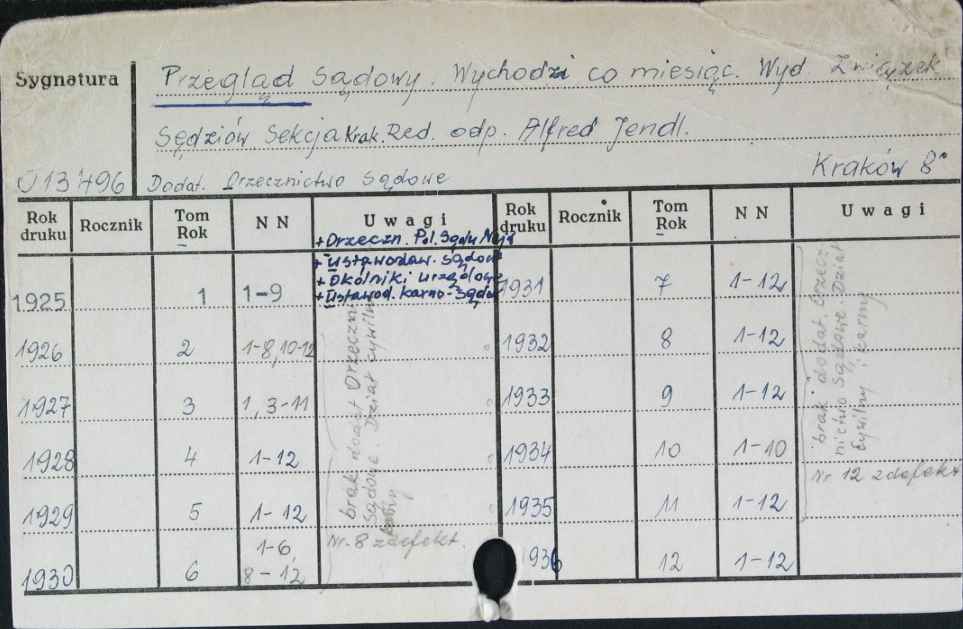 Sygnatura
Przegląd Sądowy. Wychodzi co miesiąc. Wyd. Związek
Sędziów Sekcja Krak. Red. odp. Alfred Jendl.
Kraków 8°
013496 Dodat. Orzecznictwo Sądowe
Rok druku Rocznik Tom Rok N N Uwagi Rok druku Rocznik Tom Rok N N Uwagi
+ Orzeczn. Pol. Sądu Najw
+ Ustawodaw. Sądow
+ Okólniki urzędowe
+ Ustawod. karno-Sądow
1925 1 1-9 1931 7 1-12
1926 2 1-8, 10-12 1932 8 1-12
1927 3 1, 3-11 1933 9 1-12
1928 4 1-12 1934 10 1-10
1929 5 1-12 1935 11 1-12
1930 6 1-6, 8-12 1936 12 1-12
brak dodat Orzeczn.
Sądowe. Dział cywilny
karny
Nr. 8 zdefekt.
brak dodat. Orzecz
nictwo Sądowe. Dział
Cywilny i karny
Nr 12 zdefekt